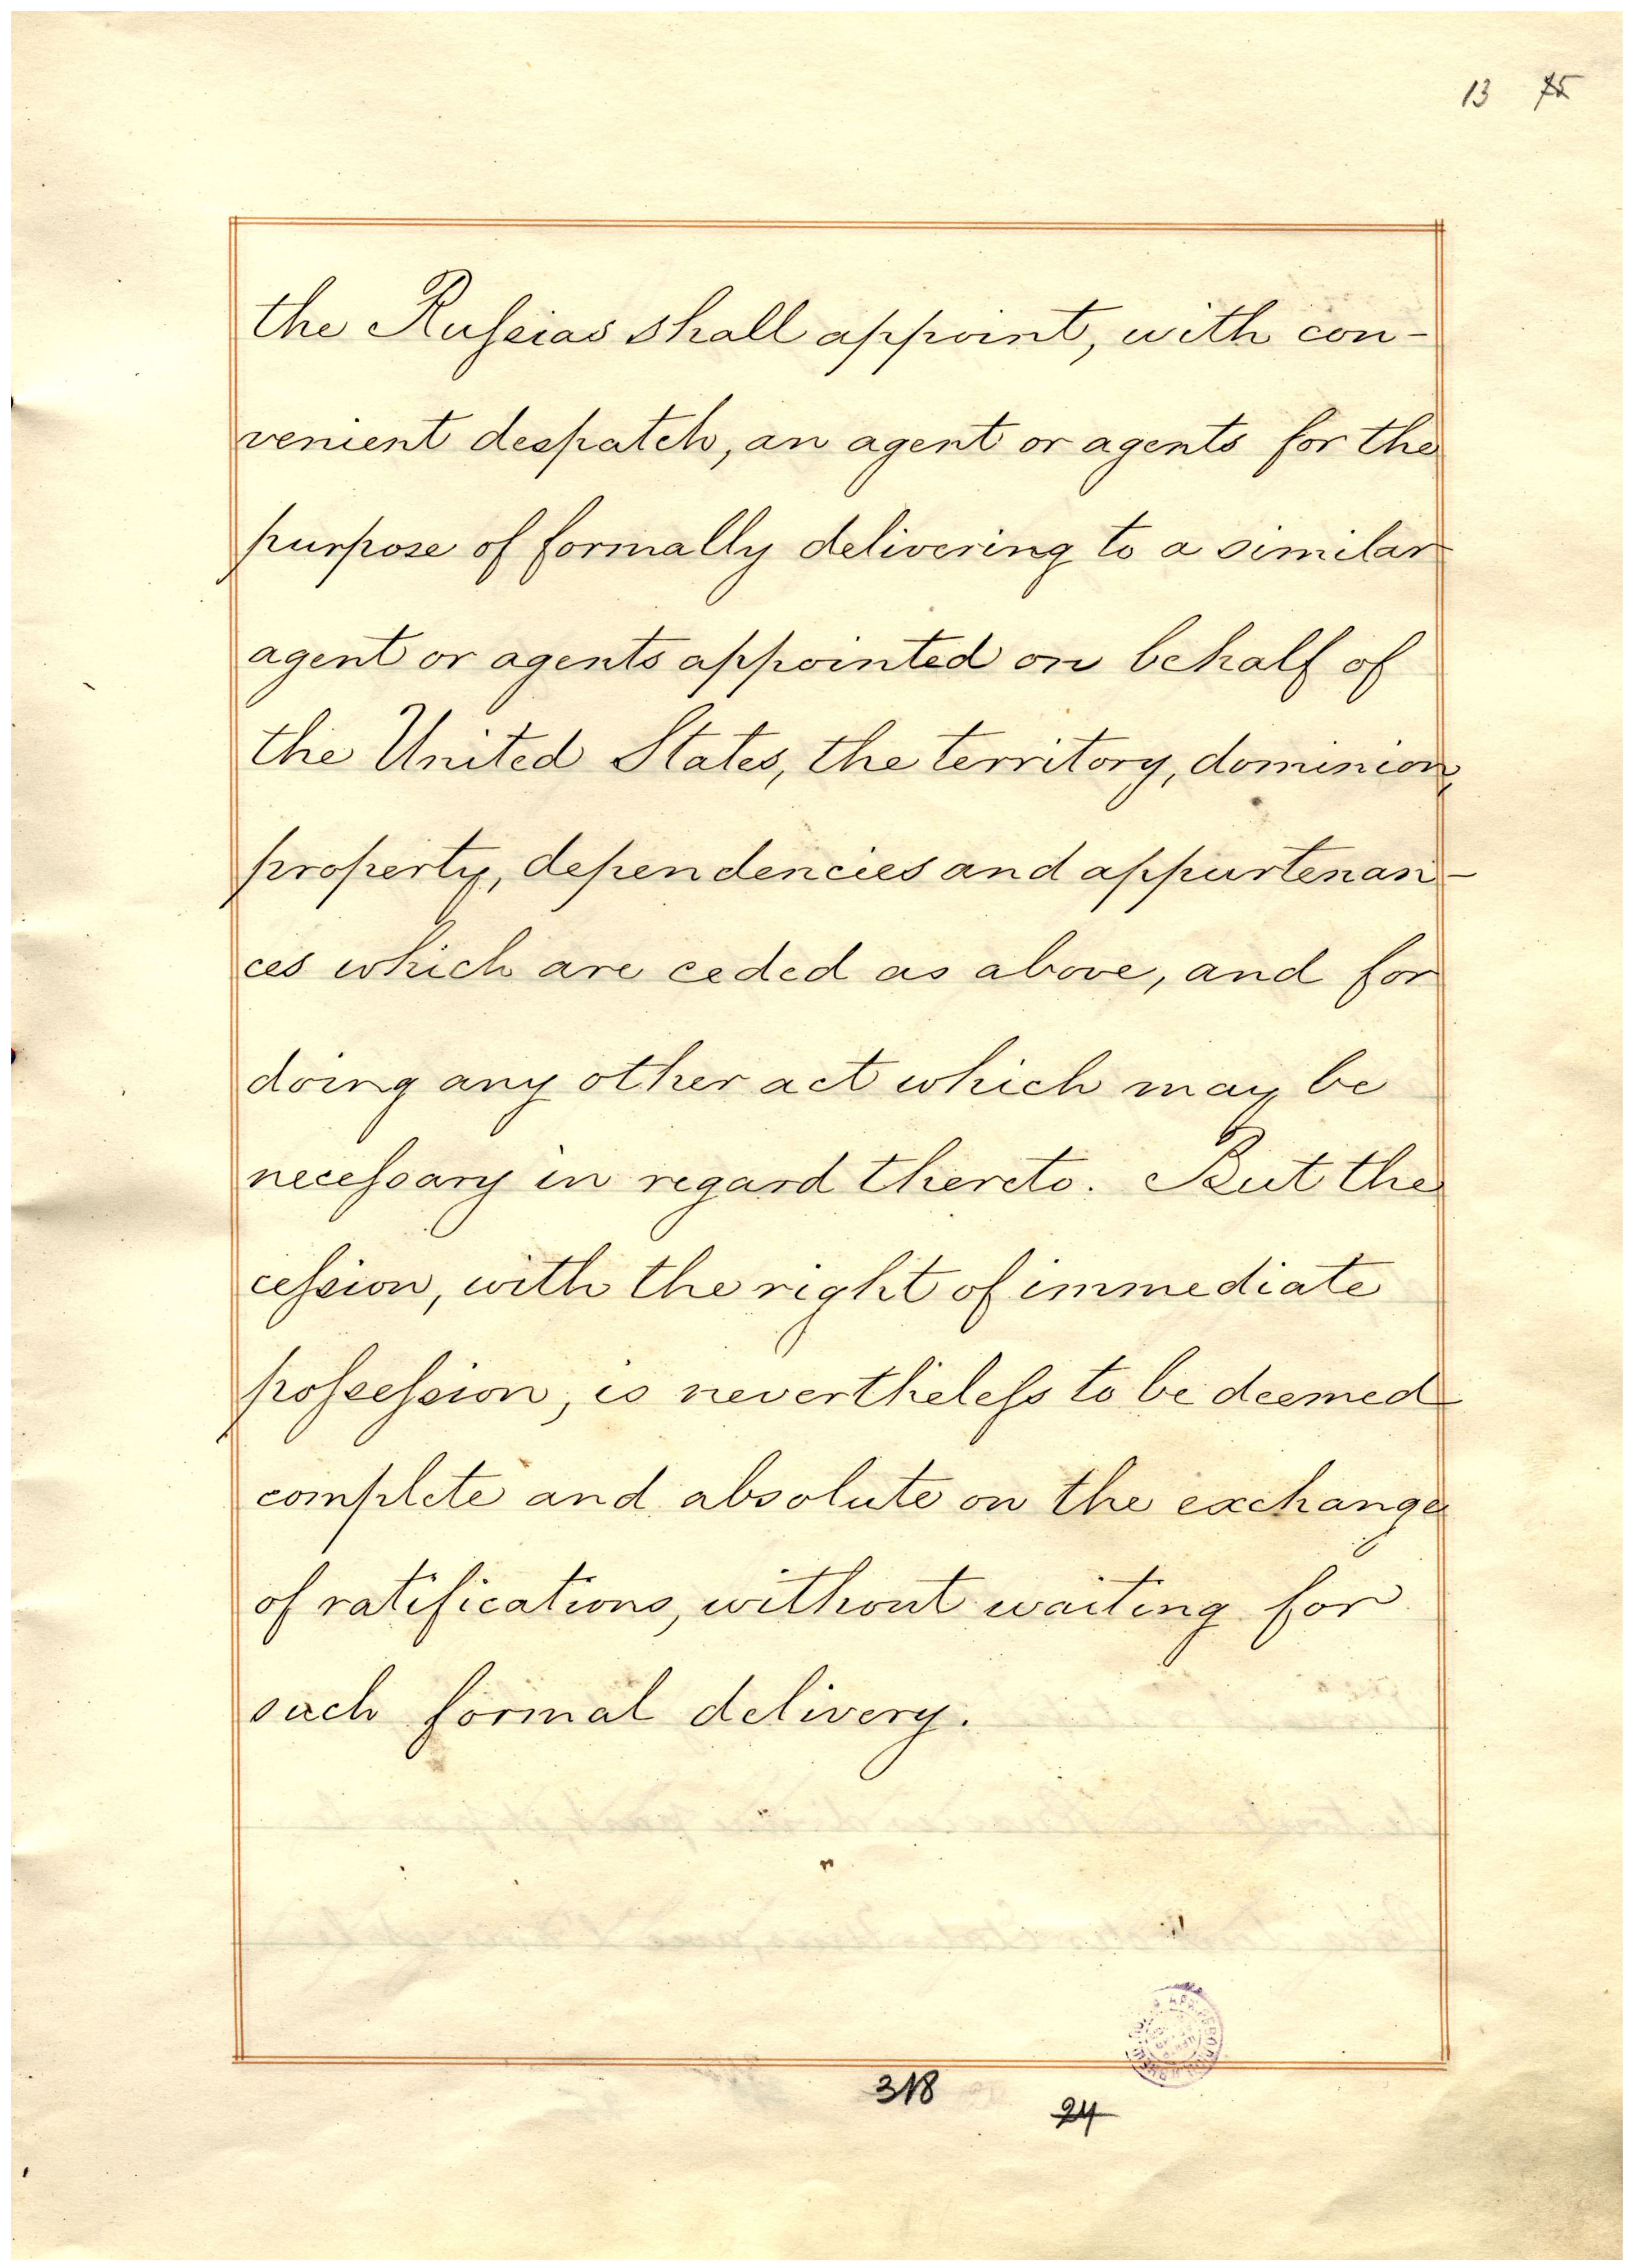 13 75
the Russias shall appoint, with con-
venient despatch, an agent or agents for the
purpose of formally delivering to a similar
agent or agents appointed on behalf of
the United States, the territory, dominion,
property, dependencies and appurtenan-
ces which are ceded as above, and for
doing any other act which may be
necessary in regard thereto. But the
cession, with the right of immediate
possession, is nevertheless to be deemed
complete and absolute on the exchange
of ratifications, without waiting for
such formal delivery.
318
24